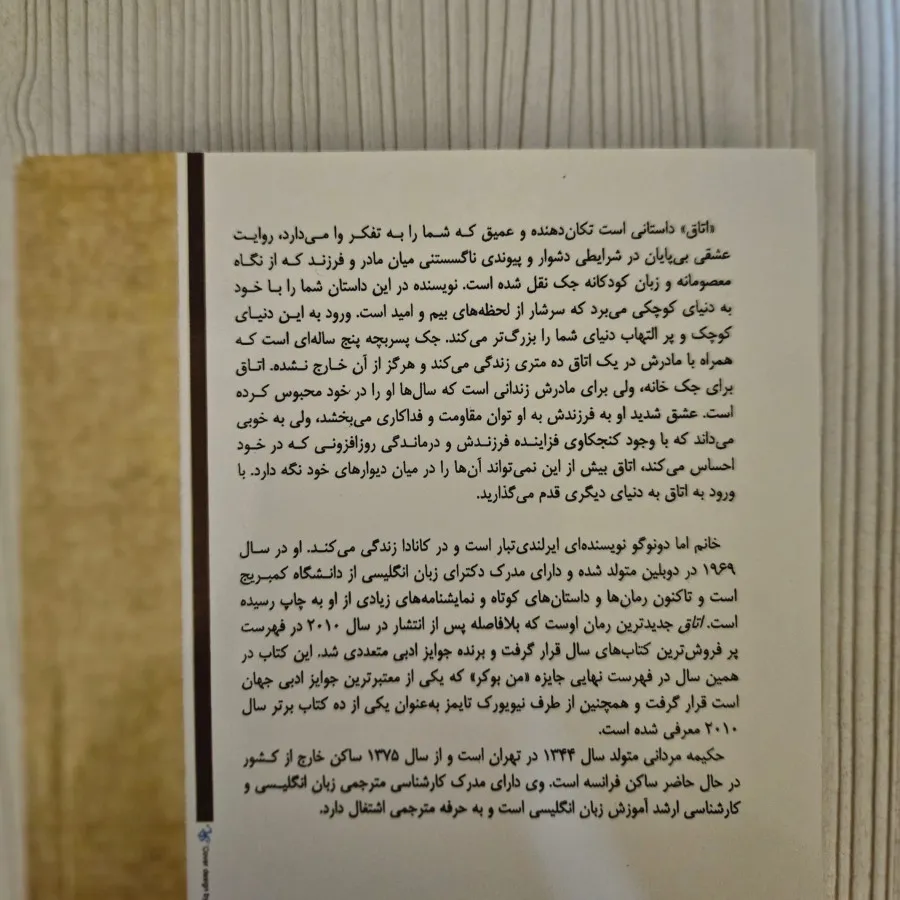 «اتاق» داستانی است تکان‌دهنده و عمیق که شما را به تفکر وا می‌دارد، روایت
عشقی بی‌پایان در شرایطی دشوار و پیوندی ناگسستنی میان مادر و فرزند که از نگاه
معصومانه و زبان کودکانه جک نقل شده است. نویسنده در این داستان شما را با خود
به دنیای کوچکی می‌برد که سرشار از لحظه‌های بیم و امید است. ورود به این دنیای
کوچک و پر التهاب دنیای شما را بزرگ‌تر می‌کند. جک پسربچه پنج ساله‌ای است که
همراه با مادرش در یک اتاق ده متری زندگی می‌کند و هرگز از آن خارج نشده. اتاق
برای جک خانه، ولی برای مادرش زندانی است که سال‌ها او را در خود محبوس کرده
است. عشق شدید او به فرزندش به او توان مقاومت و فداکاری می‌بخشد، ولی به خوبی
می‌داند که با وجود کنجکاوی فزاینده فرزندش و درماندگی روزافزونی که در خود
احساس می‌کند، اتاق بیش از این نمی‌تواند آن‌ها را در میان دیوارهای خود نگه دارد. با
ورود به اتاق به دنیای دیگری قدم می‌گذارید.
خانم اما دونوگو نویسنده‌ای ایرلندی‌تبار است و در کانادا زندگی می‌کند. او در سال
۱۹۶۹ در دوبلین متولد شده و دارای مدرک دکترای زبان انگلیسی از دانشگاه کمبریج
است و تاکنون رمان‌ها و داستان‌های کوتاه و نمایشنامه‌های زیادی از او به چاپ رسیده
است. اتاق جدیدترین رمان اوست که بلافاصله پس از انتشار در سال ۲۰۱۰ در فهرست
پر فروش‌ترین کتاب‌های سال قرار گرفت و برنده جوایز ادبی متعددی شد. این کتاب در
همین سال در فهرست نهایی جایزه «من بوکر» که یکی از معتبرترین جوایز ادبی جهان
است قرار گرفت و همچنین از طرف نیویورک تایمز به‌عنوان یکی از ده کتاب برتر سال
۲۰۱۰ معرفی شده است.
حکیمه مردانی متولد سال ۱۳۴۴ در تهران است و از سال ۱۳۷۵ ساکن خارج از کشور
در حال حاضر ساکن فرانسه است. وی دارای مدرک کارشناسی مترجمی زبان انگلیسی و
کارشناسی ارشد آموزش زبان انگلیسی است و به حرفه مترجمی اشتغال دارد.
Cover design by